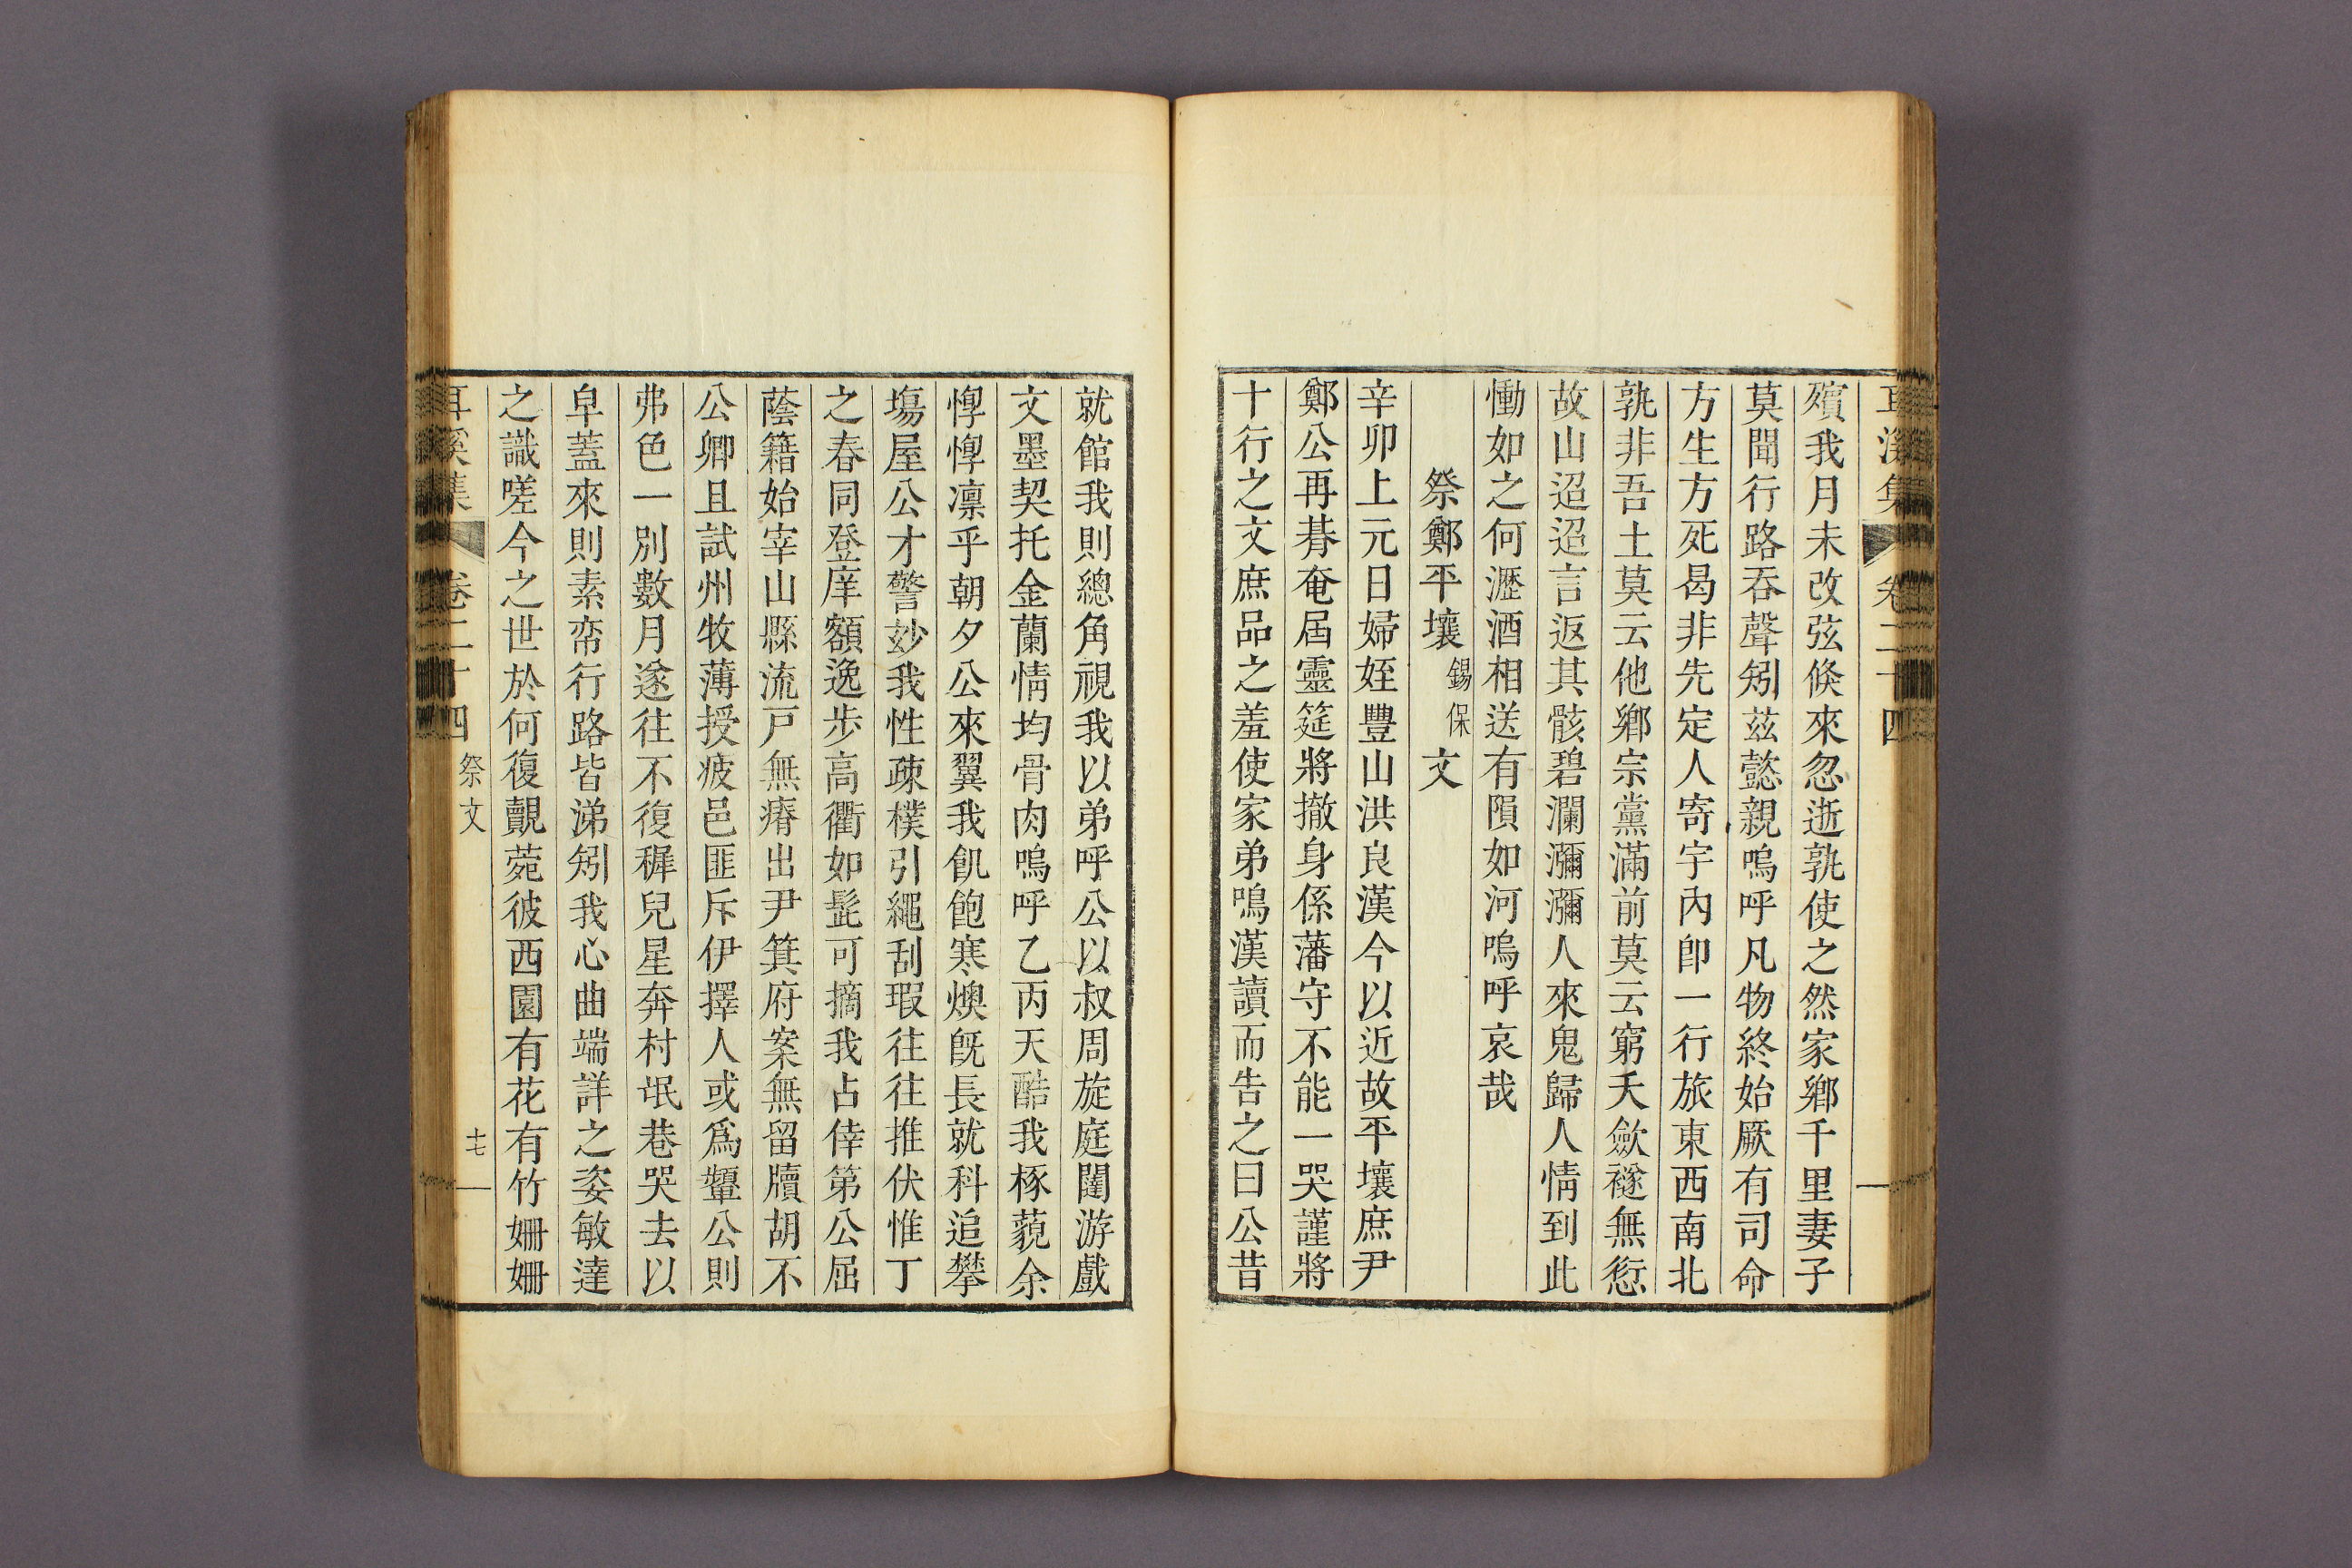 耳溪集 卷二十四
殯我月未改弦倐來忽逝孰使之然家鄉千里妻子
莫聞行路吞聲矧玆懿親嗚呼凡物終始厥有司命
方生方死曷非先定人寄宇內卽一行旅東西南北
孰非吾土莫云他鄉宗黨滿前莫云窮夭歛襚無愆
故山迢迢言返其骸碧瀾瀰瀰人來鬼歸人情到此
慟如之何瀝酒相送有隕如河嗚呼哀哉
祭鄭平壤錫保文
辛卯上元日婦姪豐山洪良漢今以近故平壤庶尹
鄭公再朞奄屆靈筵將撤身係藩守不能一哭謹將
十行之文庶品之羞使家弟鳴漢讀而告之曰公昔
就館我則總角視我以弟呼公以叔周旋庭闈游戲
文墨契托金蘭情均骨肉嗚呼乙丙天酷我椓藐余
惸惸凛乎朝夕公來翼我飢飽寒燠旣長就科追攀
塲屋公才警妙我性疎樸引繩刮瑕往往推伏惟丁
之春同登庠額逸步高衢如髭可摘我占倖第公屈
蔭籍始宰山縣流戸無瘠出尹箕府案無留牘胡不
公卿且試州牧薄授疲邑匪斥伊擇人或爲顰公則
弗色一別數月遂往不復穉兒星奔村氓巷哭去以
皁蓋來則素帟行路皆涕矧我心曲端詳之姿敏達
之識嗟今之世於何復覿菀彼西園有花有竹姍姍
耳溪集 卷二十四 祭文 十七